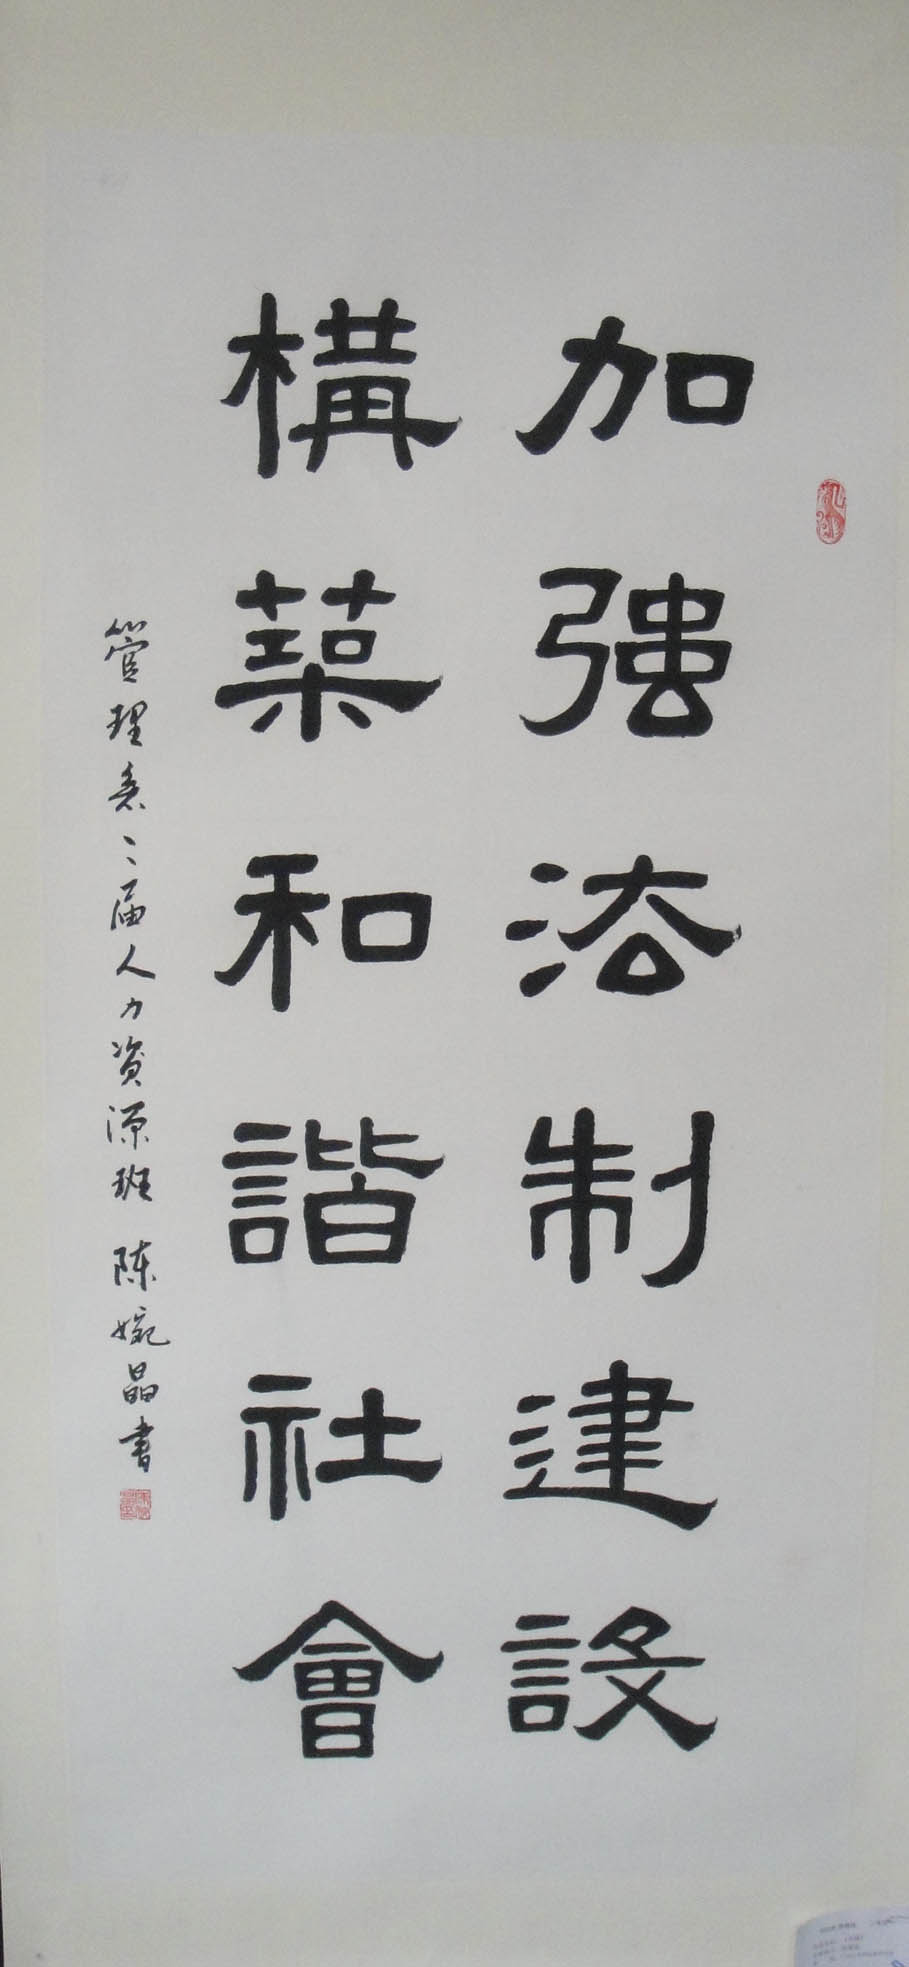 加強法制建設
構築和諧社會
管理系〻届人力资源班 陈婉晶書